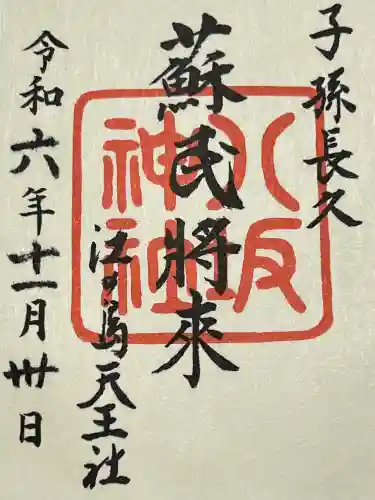 子孫長久
蘇民将来
八坂
神社
江の島天王社
令和六年十一月卅日